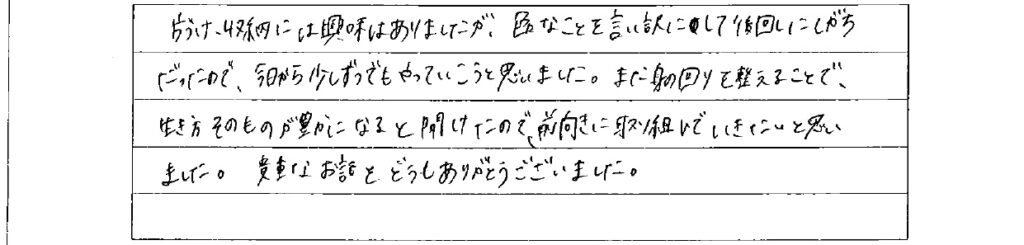 片づけ、収納には興味はありましたが、面倒なことを言い訳にして後回しにしがち
だったので、今日から少しずつでもやっていこうと思いました。また身の回りを整えることで、
生き方そのものが豊かになると聞けたので、前向きに取り組んでいきたいと思い
ました。 貴重なお話をどうもありがとうございました。